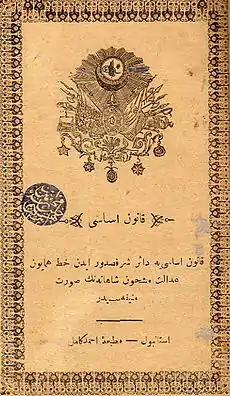 قانون اساسی
قانون اساسی یه دائر شرفصدور ایدن خط همایون
عدالت مشحون شاهانه‌نك صورت
منیفه سیدر
استانبول — مطبعهٔ احمد کامل